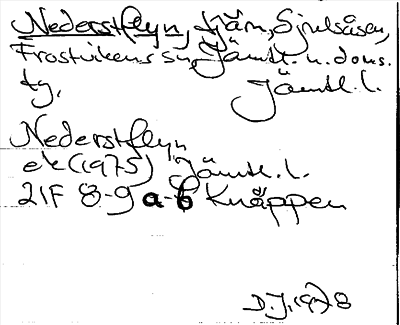 Nederstflyn, tjärn, Sjulsåsen,
Frostvikens sn, Jämtl. n. doms.
tg, Jämtl. l.
Nederstflyn
ek (1975) Jämtl. l.
21F 8-9 a-b Knäppen
D.J. 1978